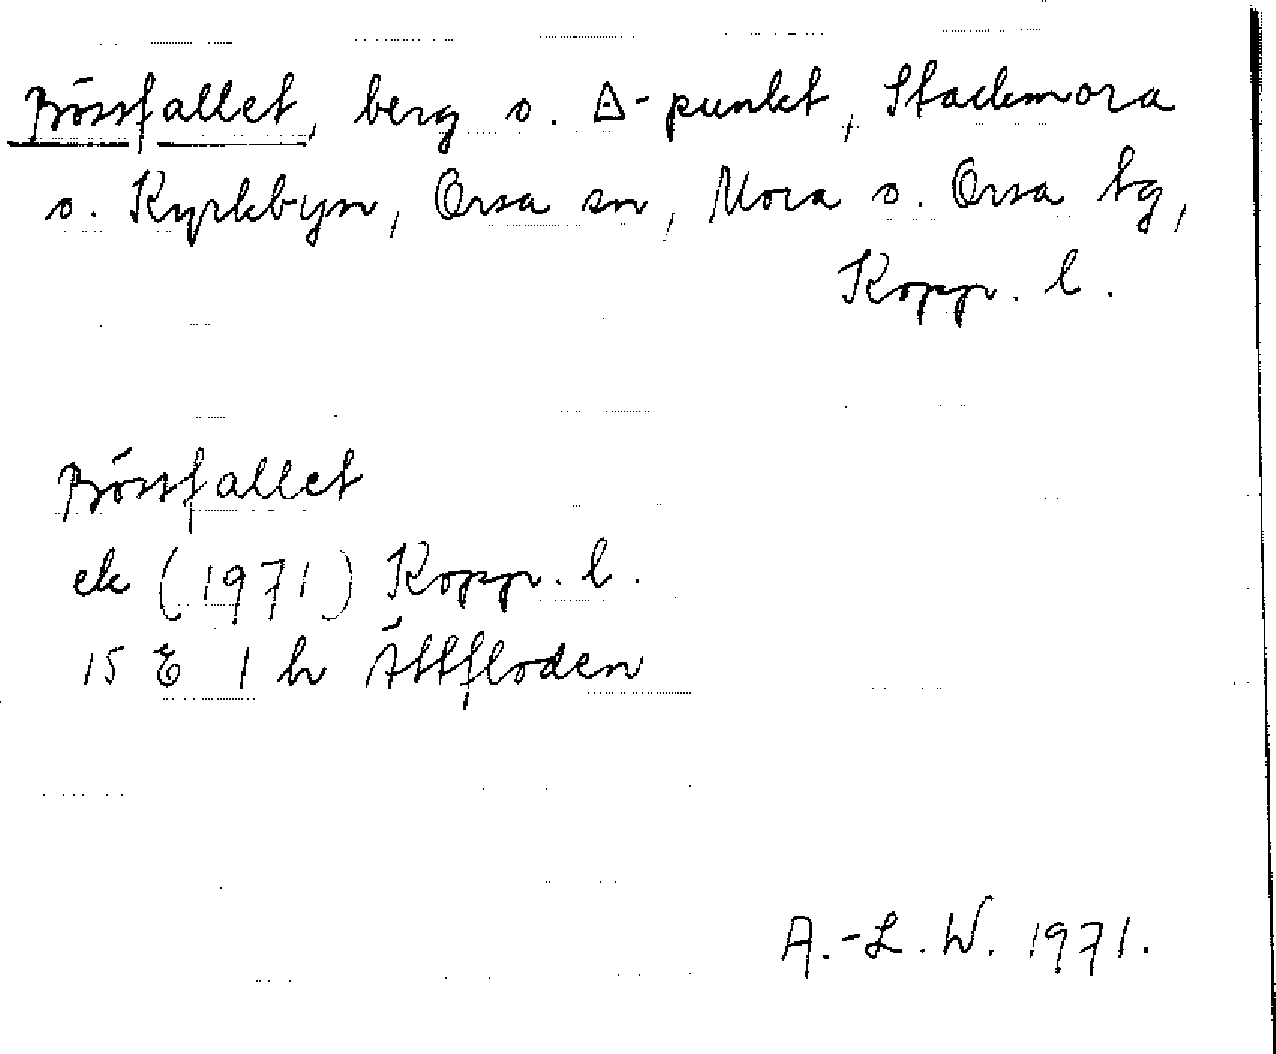 Bössfallet, berg o. △-punkt, Stackmora
o. Kyrkbyn, Orsa sn, Mora o. Orsa tg,
Kopp. l.
Bössfallet
ek (1971) Kopp. l.
15 E 1 h Ättfloden
A.-L. W. 1971.